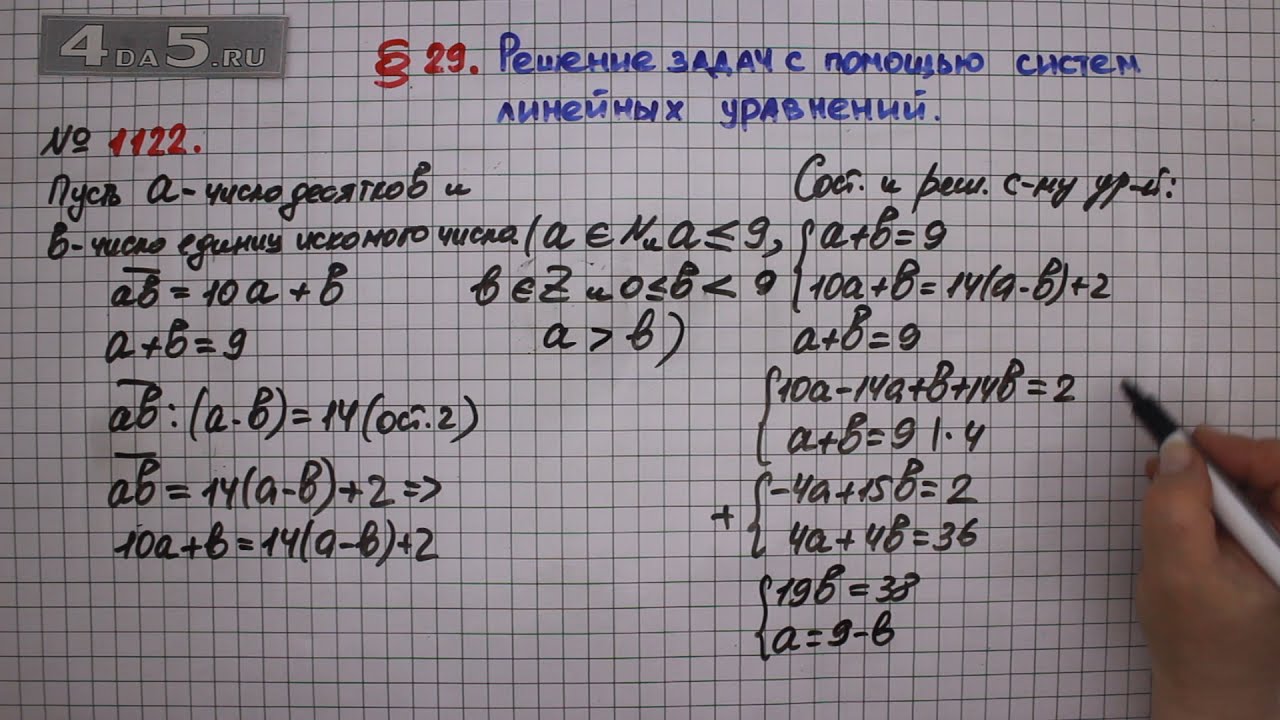 4DA5.RU
§ 29. Решение задач с помощью систем
линейных уравнений.
№ 1122.
Пусть a - число десятков и
в - число единиц искомого числа (a ∈ N и a ≤ 9,
в ∈ Z и 0 ≤ в < 9
a > в)
ав = 10a + в
a + в = 9
ав : (a - в) = 14 (ост. 2)
ав = 14(a - в) + 2 =>
10a + в = 14(a - в) + 2
Сост. и реш. с-му ур-й:
{ a + в = 9
{ 10a + в = 14(a - в) + 2
a + в = 9
{ 10a - 14a + в + 14в = 2
{ a + в = 9 | · 4
+ { -4a + 15в = 2
{ 4a + 4в = 36
{ 19в = 38
{ a = 9 - в